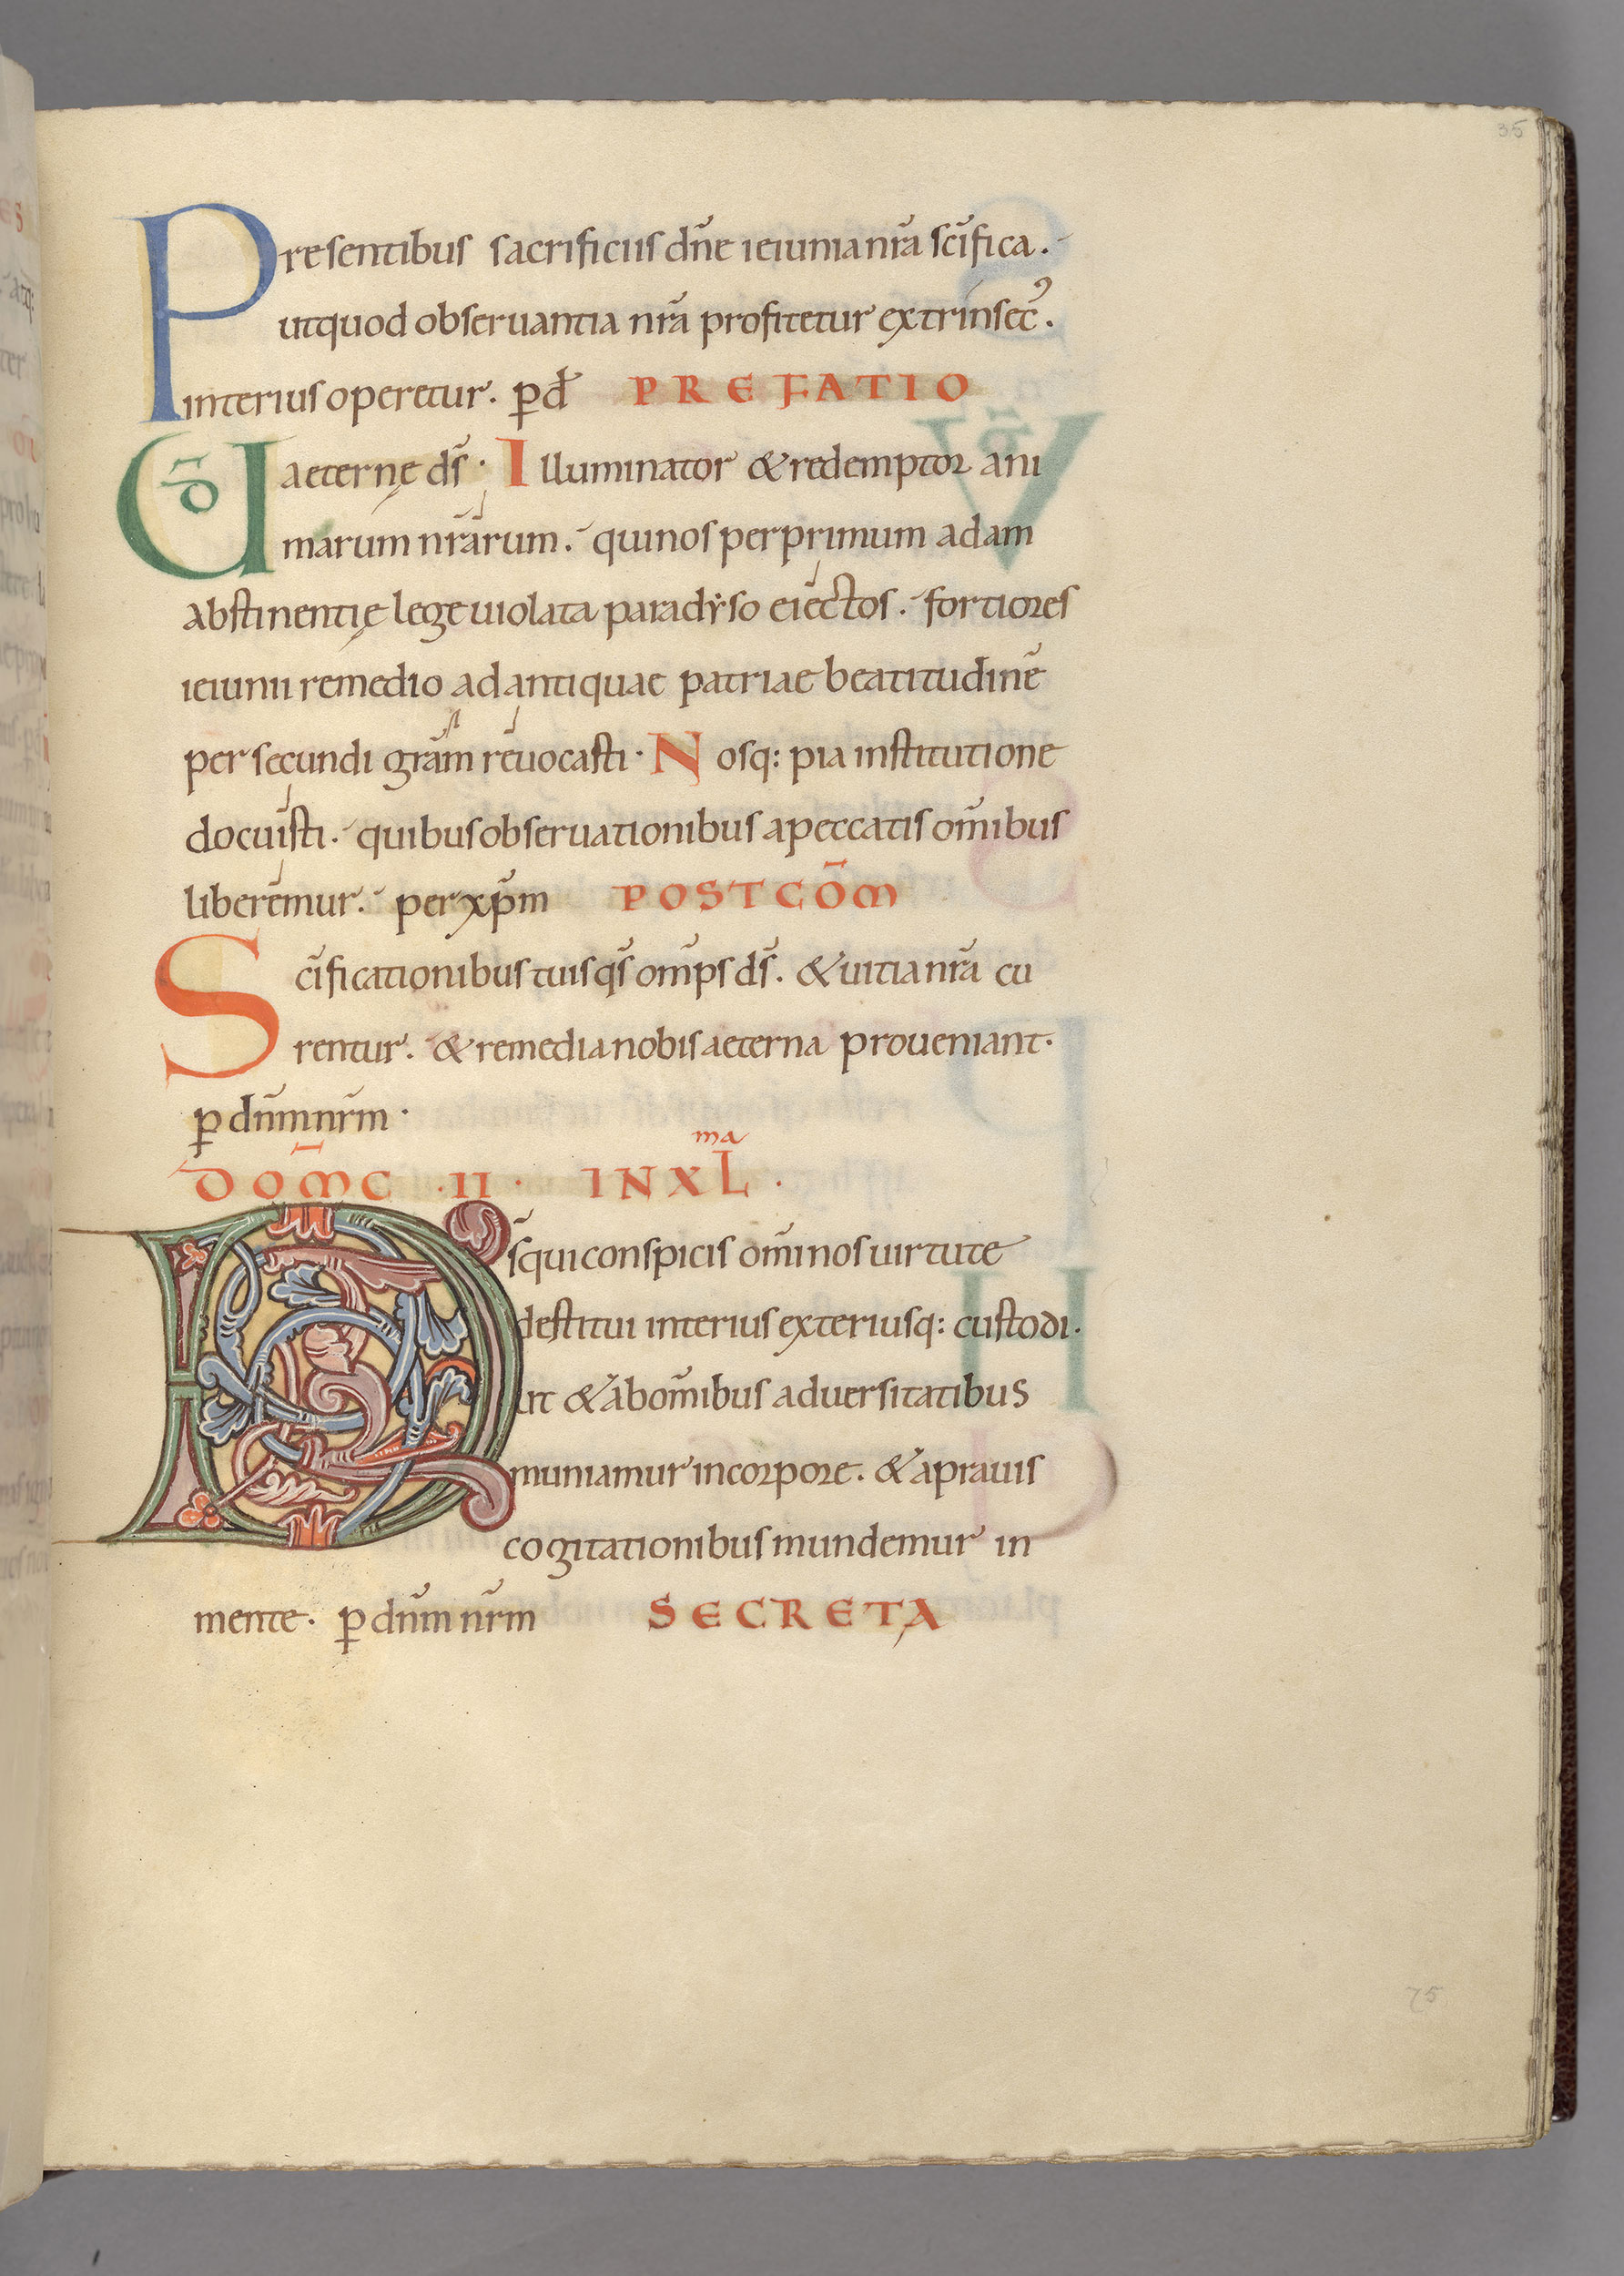 35
Presentibus sacrificiis dñe ieiunia nr̃a scĩfica.
ut quod obseruantia nr̃a profitetur extrinsec᾿.
interius operetur. ꝑ dꝉ PREFATIO
Ũ᷎D aeternę ds̃. Illuminator & redemptor ani
marum nr̃arum. qui nos per primum adam
abstinentię lege uiolata paradẏso eiectos. fortiores
ieiunii remedio ad antiquae patriae beatitudinẽ
per secundi grãm reuocasti. Nosq: pia institutione
docuisti. quibus obseruationibus a peccatis om̃ibus
liberemur. per xp̃m POSTCOM̃
Scĩficationibus tuis qs̃ om̃ps ds̃. & uitia nr̃a cu
rentur. & remedia nobis aeterna proueniant.
ꝑ dñm nr̃m.
DOM̃C .II. IN XLma.
Ds̃ qui conspicis om̃i nos uirtute
destitui interius exteriusq: custodi.
ut & ab om̃ibus aduersitatibus
muniamur in corpore. & a prauis
cogitationibus mundemur in
mente. ꝑ dñm nr̃m SECRETA
75